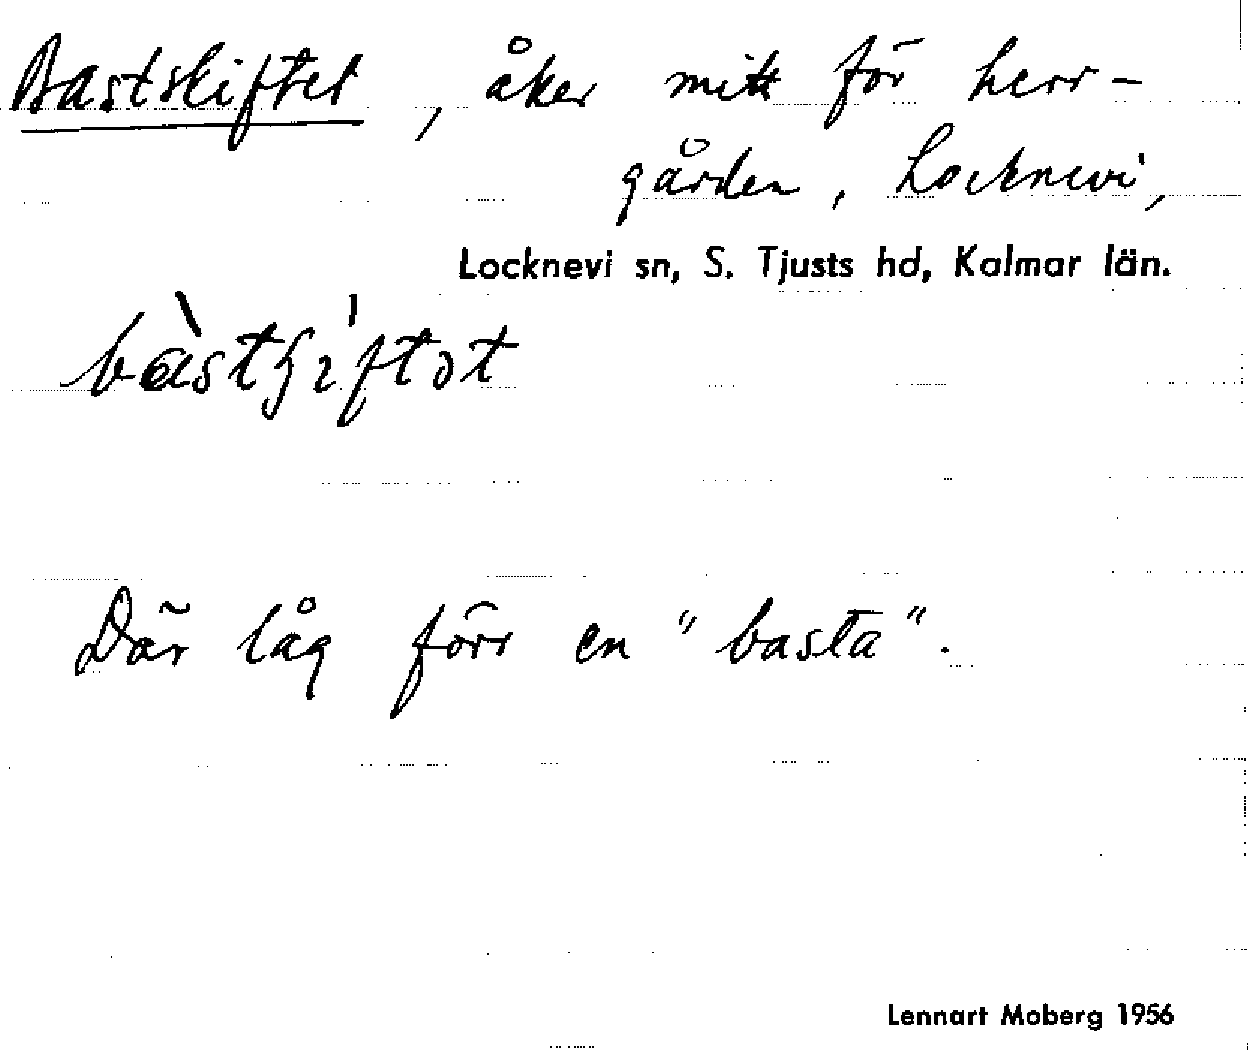 Bastskiftet, åker mitt för herr-
gården, Locknevi,
Locknevi sn, S. Tjusts hd, Kalmar län.
Där låg förr en "basta".
Lennart Moberg 1956